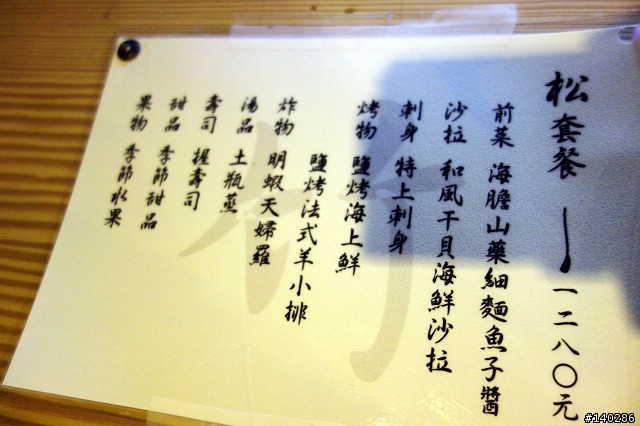 松套餐 — 一二八〇元
前菜 海膽山藥細麵魚子醬
沙拉 和風干貝海鮮沙拉
刺身 特上刺身
烤物 鹽烤海上鮮
鹽烤法式羊小排
炸物 明蝦天婦羅
湯品 土瓶蒸
壽司 握壽司
甜品 季節甜品
果物 季節水果
竹
#140286